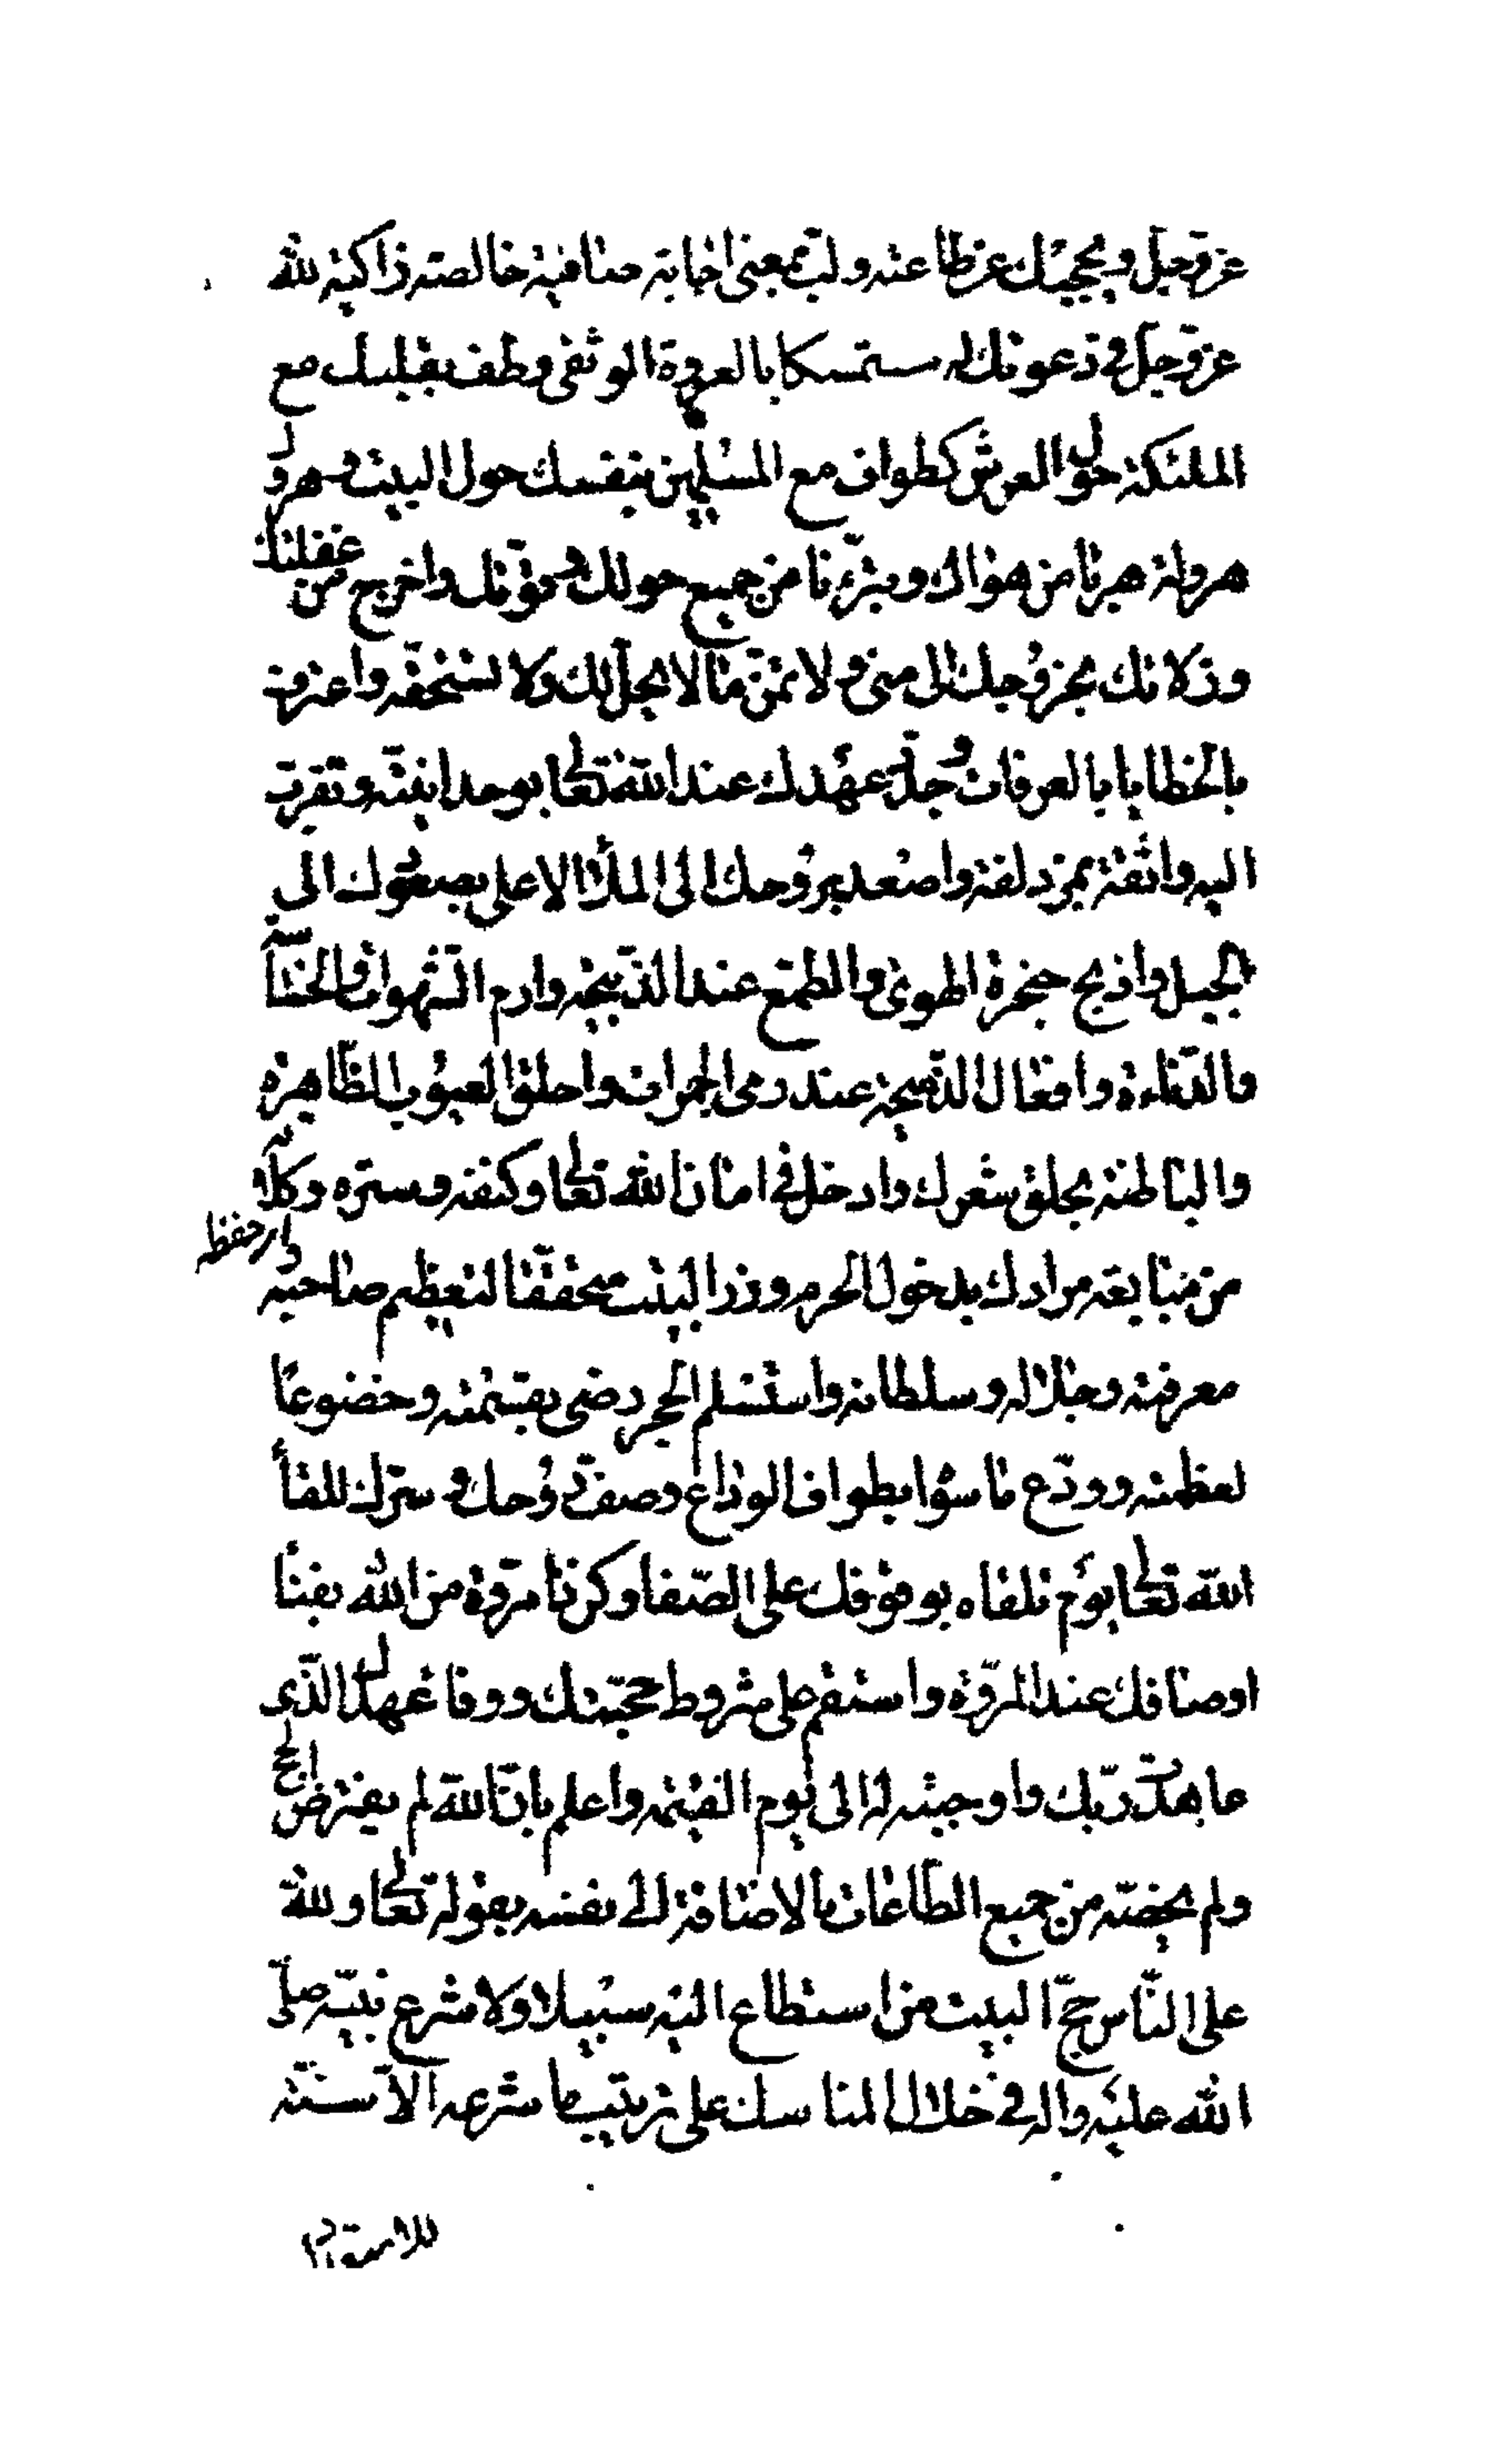 عز وجل ويحجبك عن طاعته ولب بمعنى اجابة صافية خالصة زاكية لله
عز وجل في دعوتك له متمسكا بالعروة الوثقى وطف بقلبك مع
الملئكة حول العرش كطوافك مع المسلمين بنفسك حول البيت وهرول
هرولة هربا من هواك وتبرّءا من جميع حولك وقوّتك واخرج من غفلتك
وزلاتك بخروجك الى منى ولا تمنّ ما لا يحل لك ولا تستحقه واعترف
بالخطايا بالعرفات وجدّد عهدك عند الله تعالى بوحدانيته وتقرب
اليه واثقة بمزدلفة واصعد بروحك الى الملأ الاعلى بصعودك الى
الجبل واذبح حنجرة الهوى والطمع عند الذبيحة وارم الشهوات والخساسة
والدناءة وافعال الذميمة عند رمى الجمرات واحلق العيوب الظاهرة
والباطنة بحلق شعرك وادخل في امان الله تعالى وكنفه وستره وكلائه وحفظه
من متابعة مرادك بدخول الحرم وزر البيت متحققا لتعظيم صاحبه
معرفته وجلاله وسلطانه واستلم الحجر رضى بقسمته وخضوعا
لعظمته وودّع ما سواه بطواف الوداع وصفّ روحك وسرّك للقاء
الله تعالى يوم تلقاه بوقوفك على الصّفا وكن ذا مروّة من الله بفناء
اوصافك عند المروة واستقم على شروط حجّتك ووفاء عهدك الذى
عاهدت ربّك واوجبته له الى يوم القيمة واعلم بانّ الله لم يفترض الحج
ولم يخصّه من جميع الطّاعات بالاضافة الى نفسه بقوله تعالى ولله
على النّاس حجّ البيت من استطاع اليه سبيلا ولا شرع نبيّه صلّى
الله عليه واله في خلال المناسك على ترتيب ما شرعه الاّ سنّة